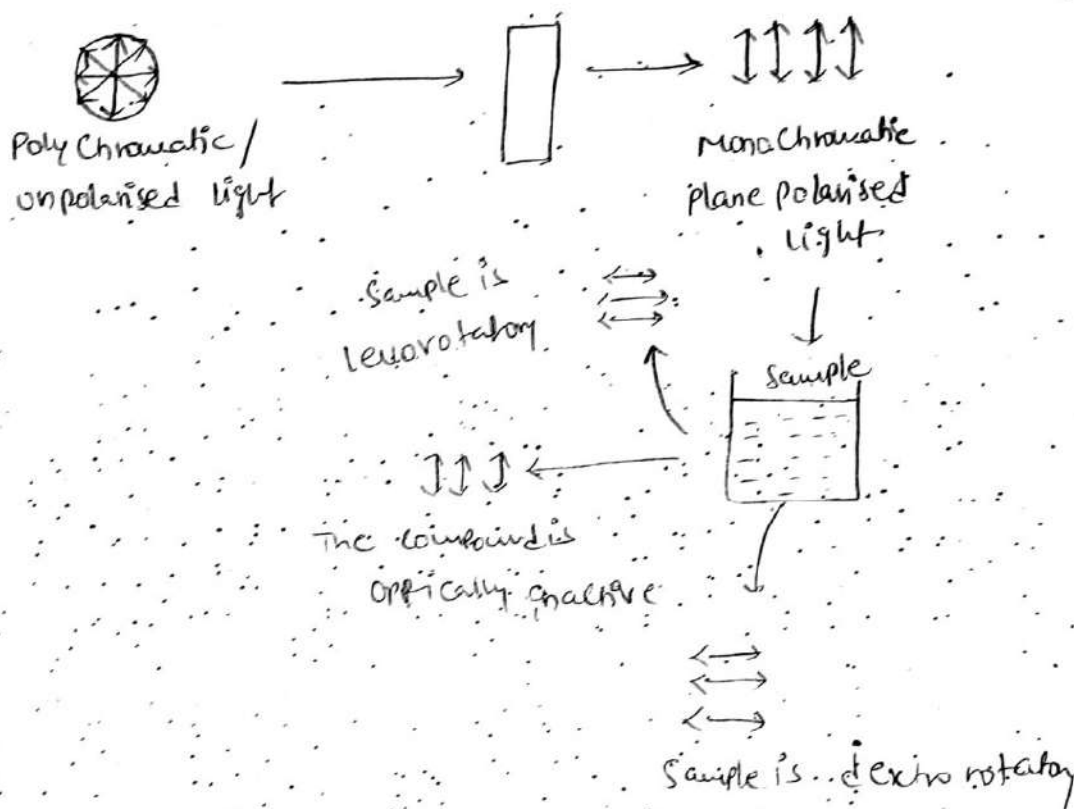 Poly Chromatic /
unpolarised light
MonoChromatic
plane polarised
light
Sample
Sample is
levorotatory
The compound is
optically inactive
Sample is dextro rotatory